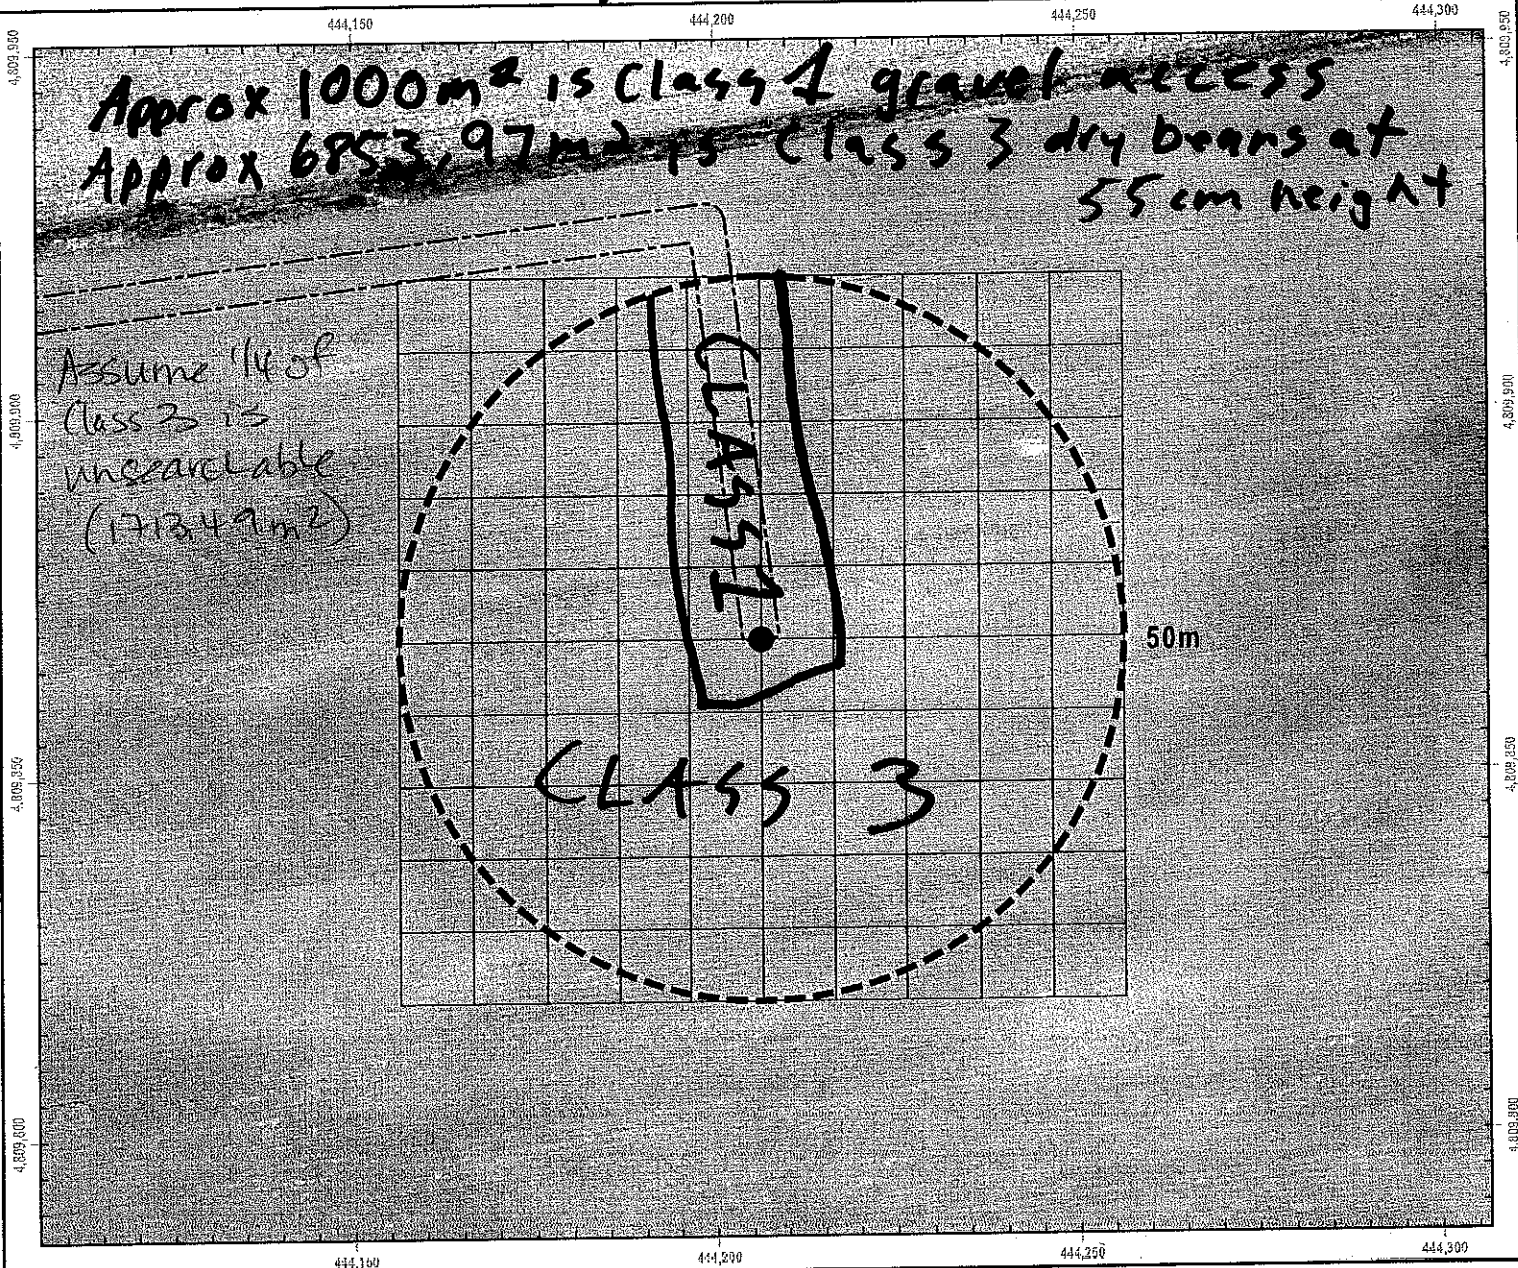 444,150 444,200 444,250 444,300
4,809,950 4,809,950
Approx 1000m² is Class 1 gravel access
Approx 6853.97m² is Class 3 dry beans at
55 cm height
Assume 1/4 of
Class 3 is
unsearchable
(1713.49m²)
4,809,900 4,809,900
CLASS 1
50m
CLASS 3
4,809,850 4,809,850
4,809,800 4,809,800
444,150 444,200 444,250 444,300